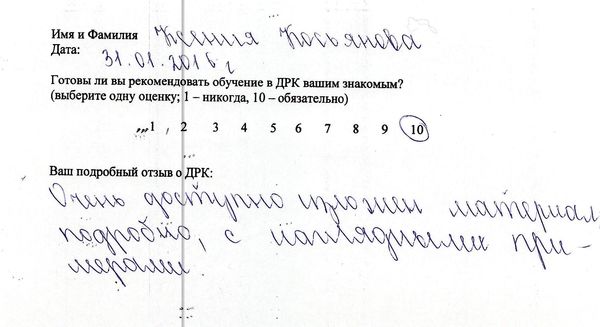 Имя и Фамилия Ксения Косьянова
Дата: 31.01.2016 г
Готовы ли вы рекомендовать обучение в ДРК вашим знакомым?
(выберите одну оценку; 1 – никогда, 10 – обязательно)
1 2 3 4 5 6 7 8 9 10
Ваш подробный отзыв о ДРК:
Очень доступно изложен материал
подробно, с наглядными при-
мерами.